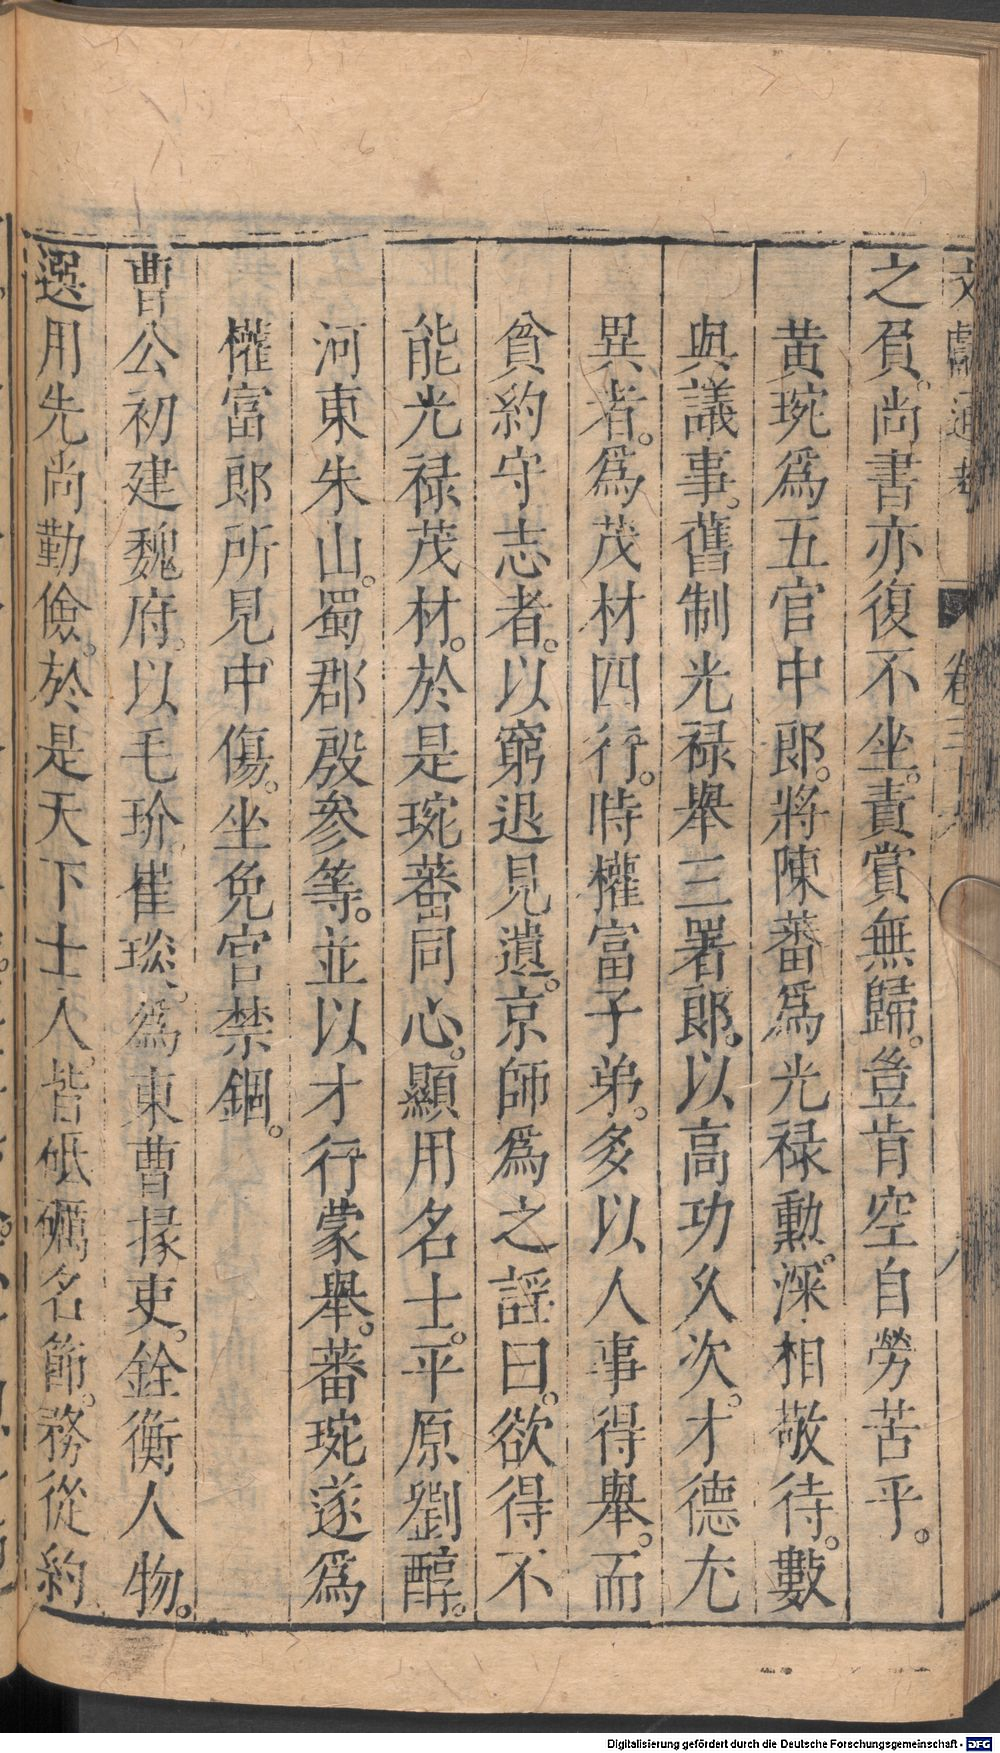 文獻通考 卷三十
之負。尚書亦復不坐。責賞無歸。豈肯空自勞苦乎。
黃琬爲五官中郎。將陳蕃爲光祿勳。深相敬待。數
與議事。舊制光祿舉三署郎。以高功久次。才德尤
異者。爲茂材四行。時權富子弟。多以人事得舉。而
貧約守志者。以窮退見遺。京師爲之謡曰。欲得不
能光祿茂材。於是琬蕃同心。顯用名士。平原劉醇。
河東朱山。蜀郡殷參等。並以才行蒙舉。蕃琬遂爲
權富郎所見中傷。坐免官禁錮。
曹公初建魏府。以毛玠崔琰。爲東曹掾吏。銓衡人物。
選用先尚勤儉。於是天下士人。皆砥礪名節。務從約
Digitalisierung gefördert durch die Deutsche Forschungsgemeinschaft - DFG